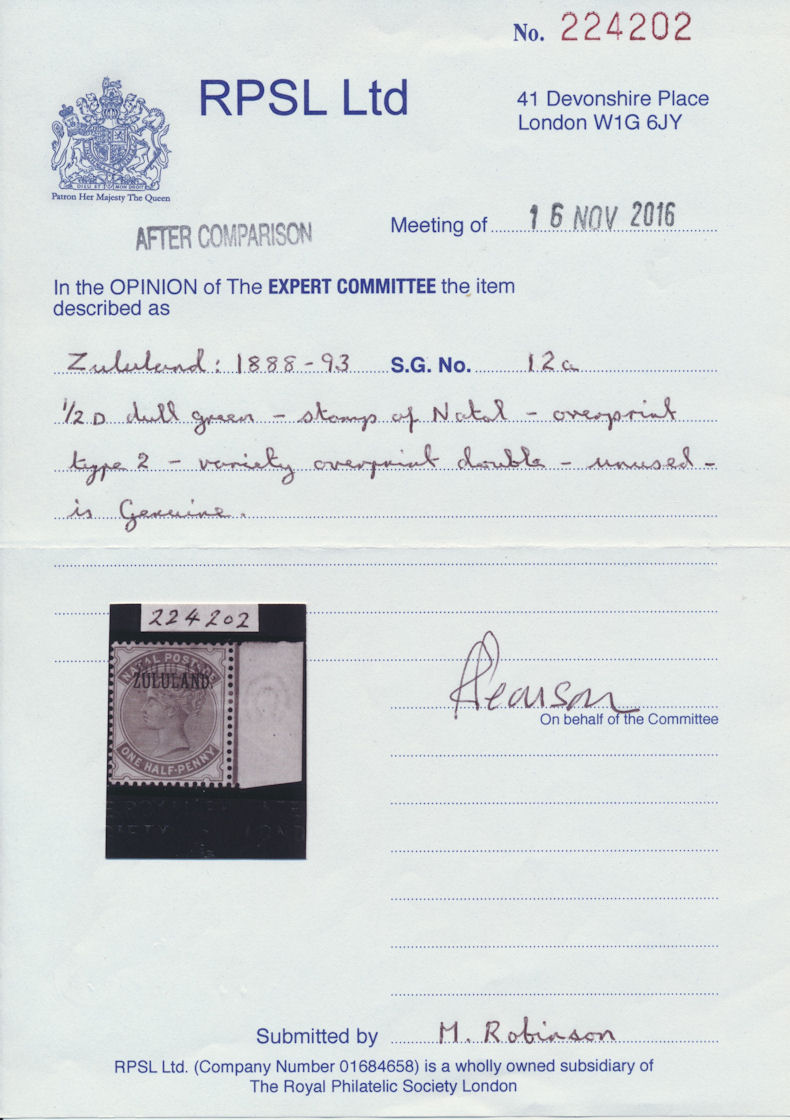 No. 224202
RPSL Ltd
41 Devonshire Place
London W1G 6JY
DIEU ET MON DROIT
Patron Her Majesty The Queen
AFTER COMPARISON
Meeting of 16 NOV 2016
In the OPINION of The EXPERT COMMITTEE the item
described as
Zululand: 1888-93 S.G. No. 12a
1/2D dull green - stamps of Natal - overprint
type 2 - variety overprint double - unused -
is Genuine.
224202
NATAL POSTAGE
ZULULAND.
ONE HALF-PENNY
Pearson
On behalf of the Committee
Submitted by M. Robinson
RPSL Ltd. (Company Number 01684658) is a wholly owned subsidiary of
The Royal Philatelic Society London